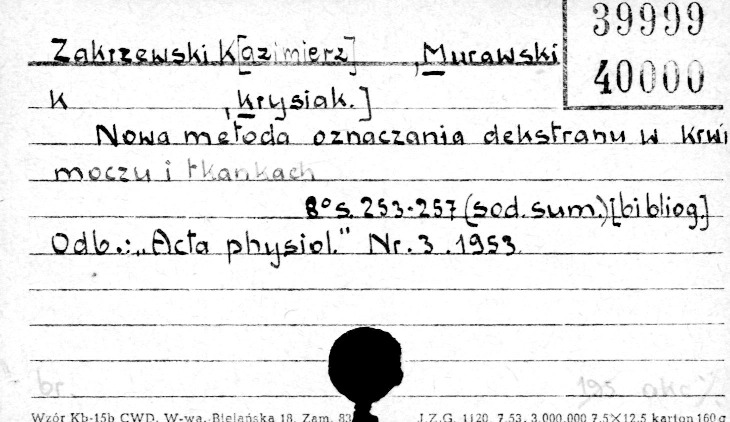 39999
40000
Zakrzewski K[azimierz] , Murawski
K , Krysiak.]
Nowa metoda oznaczania dekstranu w krwi
moczu i tkankach
8° s. 253-257 (sod. sum.) [bibliog.]
Odb.: „Acta physiol." Nr. 3 . 1953.
br.
195
Wzór Kb-15b CWD. W-wa, Bielańska 18. Zam. 83
J.Z.G. 1120 7.53. 3.000.000 7.5×12.5 karton 160 g